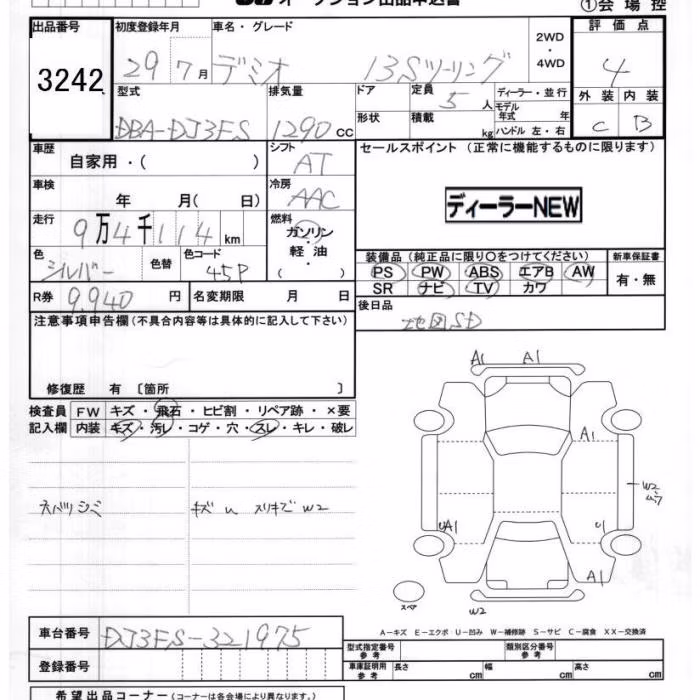 オークション出品申込書
①会場控
出品番号 3242
初度登録年月 29 7月
車名・グレード デミオ 13Sツーリング
2WD・4WD
評価点 4
外装 C 内装 B
型式 DBA-DJ3FS
排気量 1290 cc
ドア 定員 5人
形状 積載 kg
ディーラー・並行
モデル年式 年
ハンドル 左・右
車歴 自家用・( )
シフト AT
車検 年 月( 日)
冷房 AAC
走行 9万4千114 km
燃料 ガソリン・軽油・( )
色 シルバー 色替 色コード 45P
R券 9,940 円 名変期限 月 日
セールスポイント (正常に機能するものに限ります)
ディーラーNEW
装備品 (純正品に限り○をつけてください) 新車保証書
PS PW ABS エアB AW 有・無
SR ナビ TV カワ
後日品 地図SD
注意事項申告欄 (不具合内容等は具体的に記入して下さい)
修復歴 有 〔箇所 〕
検査員 FW キズ・飛石・ヒビ割・リペア跡・×要
記入欄 内装 キズ・汚レ・コゲ・穴・スレ・キレ・破レ
ネバリシミ
キズ u スリキズ W2
A1 A1
A1
W2
UA1 U1
A1
スペア W2
車台番号 DJ3FS-321975
登録番号
A-キズ E-エクボ U-凹み W-補修跡 S-サビ C-腐食 XX-交換済
型式指定番号 類別区分番号
車庫証明用参考 長さ cm 幅 cm 高さ cm
希望出品コーナー (コーナーは各会場により異なります。)